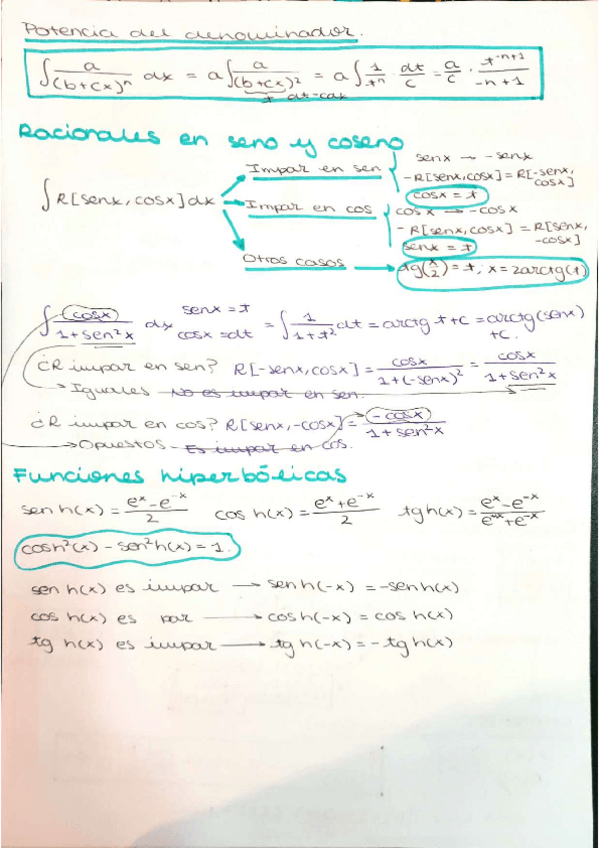 Potencia del denominador.
∫ a/(b+cx)ⁿ dx = a∫ a/(b+cx)² = a∫ 1/tⁿ · dt/c = a/c · t⁻ⁿ⁺¹/-n+1
t dt=cdx
Racionales en seno y coseno
∫R[senx, cosx]dx
Impar en sen
senx → -senx
-R[senx, cosx] = R[-senx, cosx]
cosx = t
Impar en cos
cosx → -cosx
-R[senx, cosx] = R[senx, -cosx]
senx = t
Otros casos → tg(x/2) = t ; x = 2arctg(t)
∫ cosx/1+sen²x dx senx = t cosx = dt = ∫ 1/1+t² dt = arctg t + c = arctg(senx) + c.
¿R impar en sen? R[-senx, cosx] = cosx/1+(-senx)² = cosx/1+sen²x
→ Iguales No es impar en sen.
¿R impar en cos? R[senx, -cosx] = -cosx/1+sen²x
→ Opuestos Es impar en cos.
Funciones hiperbólicas
sen h(x) = eˣ-e⁻ˣ/2 cos h(x) = eˣ+e⁻ˣ/2 tg h(x) = eˣ-e⁻ˣ/eˣ+e⁻ˣ
cosh²(x) - sen²h(x) = 1.
sen h(x) es impar → sen h(-x) = -sen h(x)
cos h(x) es par → cos h(-x) = cos h(x)
tg h(x) es impar → tg h(-x) = - tg h(x)